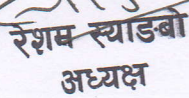 रेशम स्याङबो
अध्यक्ष